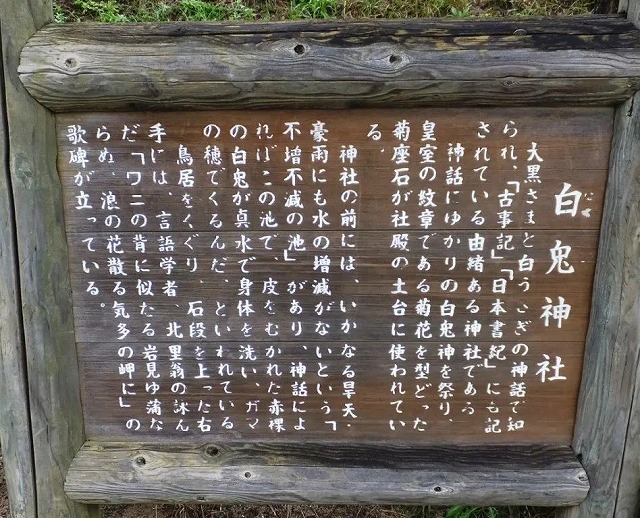 白兎神社
はくと
大黒さまと白うさぎの神話で知
られ、「古事記」「日本書紀」にも記
されている由緒ある神社である
神話にゆかりの白兎神を祭り、
皇室の紋章である菊花を型どった
菊座石が社殿の土台に使われてい
る。
神社の前には、いかなる旱天・
豪雨にも水の増減がないという「
不増不減の池」があり、神話によ
ればこの池で、皮をむかれた赤裸
の白兎が真水で身体を洗い、ガマ
の穂でくるんだ、といわれている
鳥居をくぐり、石段を上った右
手には、言語学者、北里翁の詠ん
だ「ワニの背に似たる岩見ゆ蒲な
らぬ、浪の花散る気多の岬に」の
歌碑が立っている。